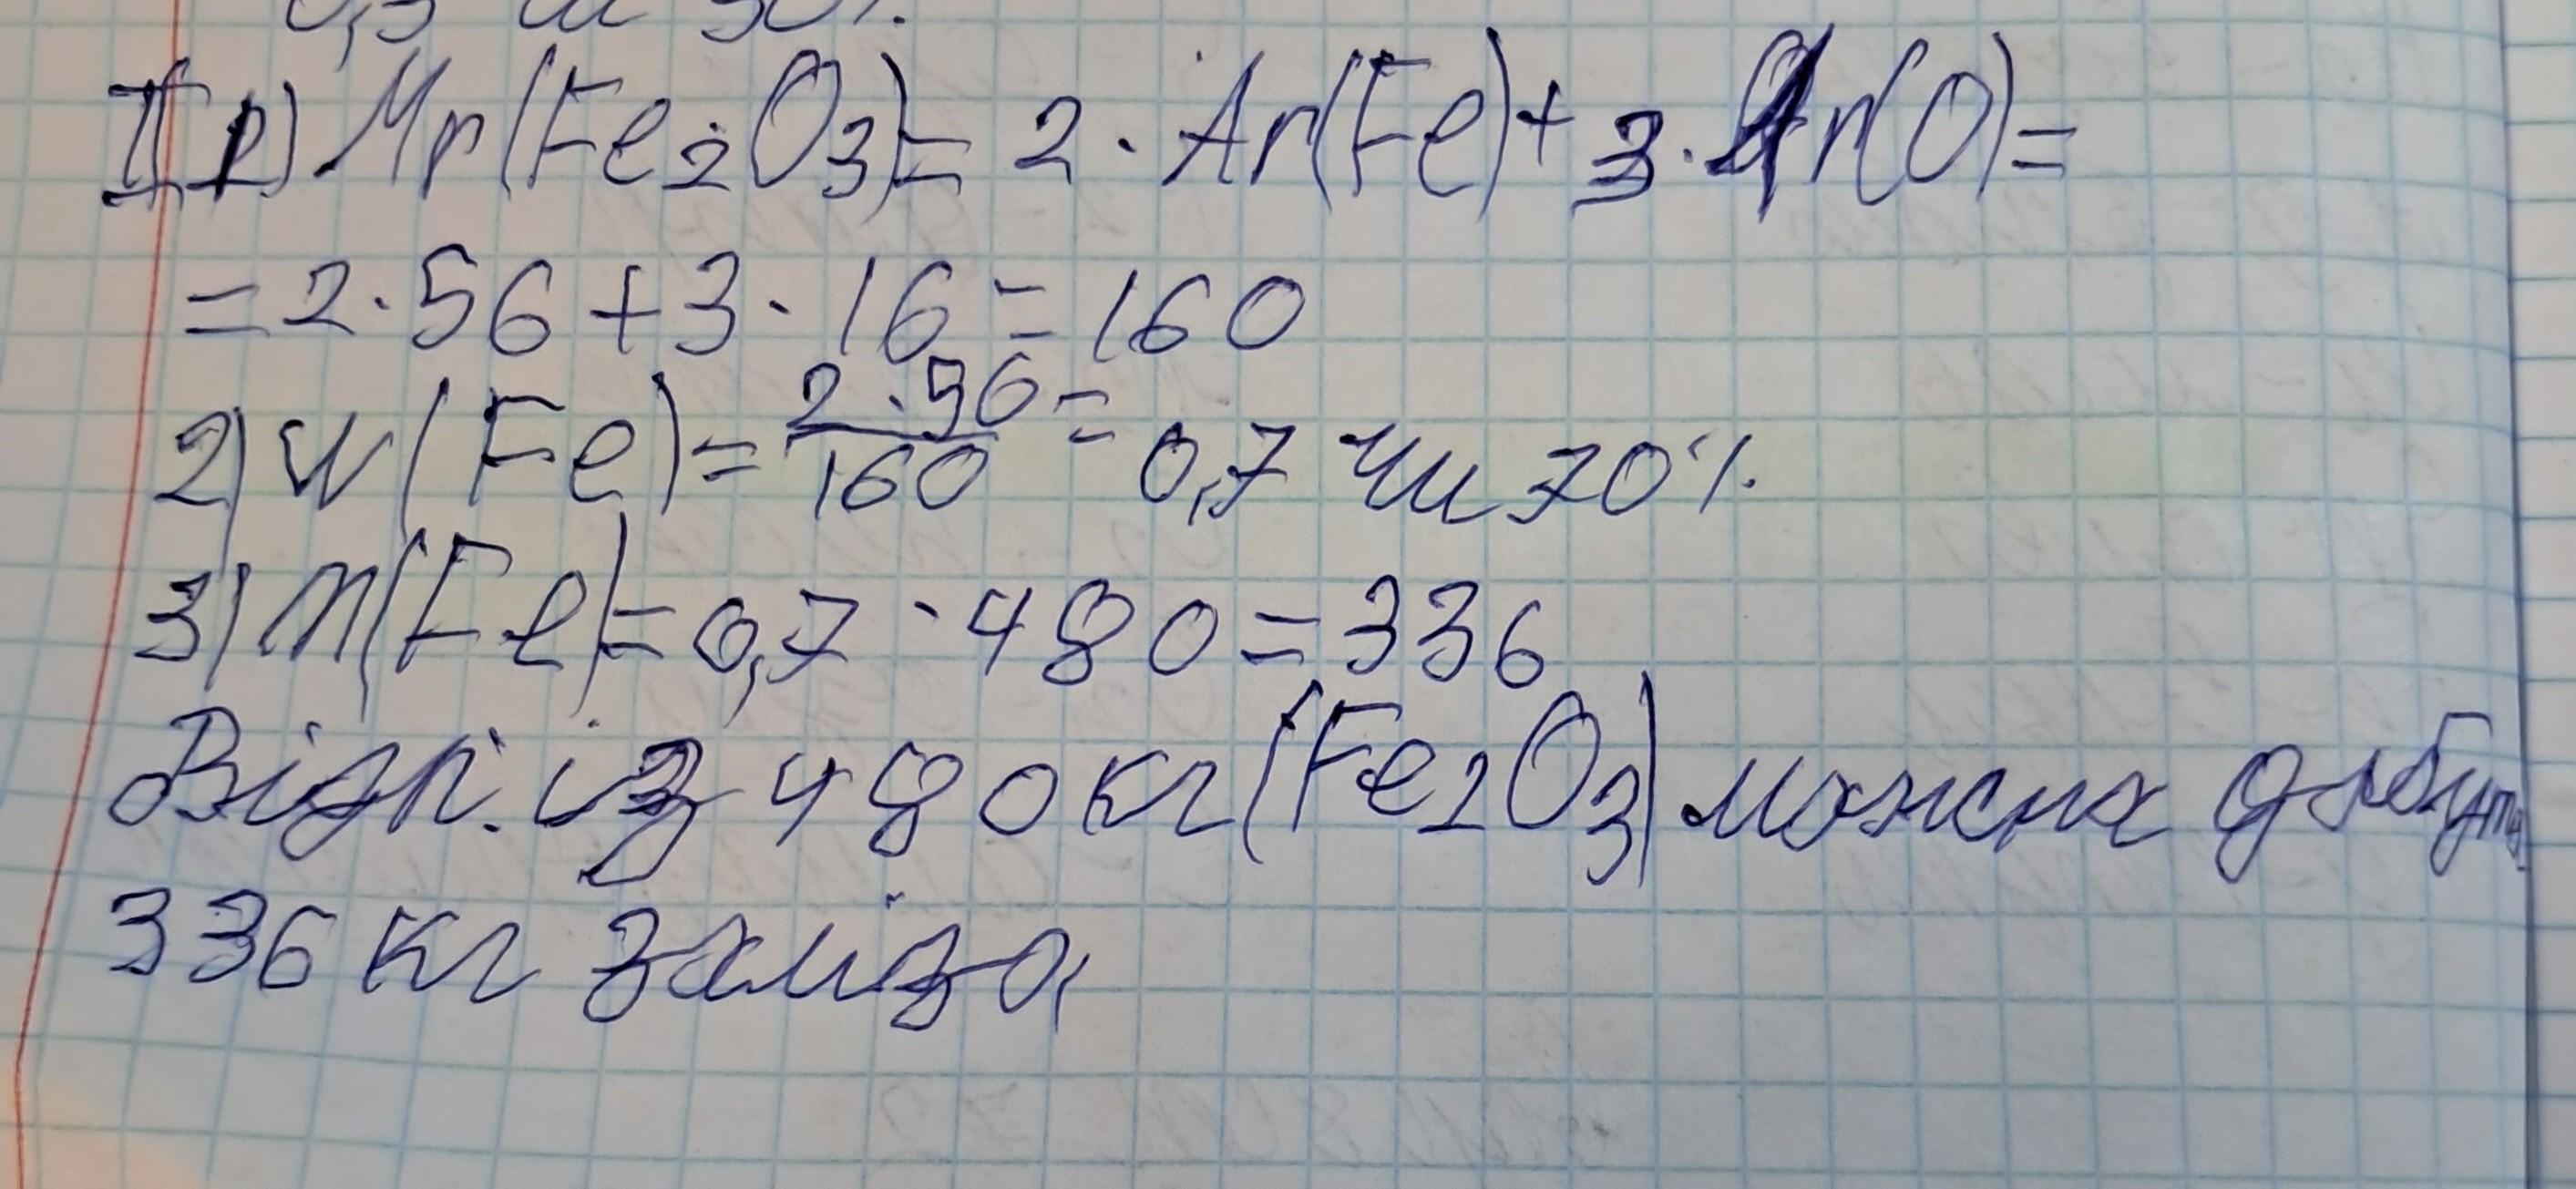 0,3 чи 30%.
II 1) Mr(Fe2O3)= 2 · Ar(Fe)+3·Ar(O)=
=2·56+3·16=160
2) W(Fe)=2·56/160=0,7 чи 70%.
3) m(Fe)=0,7·480=336
Відп. із 480кг(Fe2O3) можна добути
336 кг заліза,